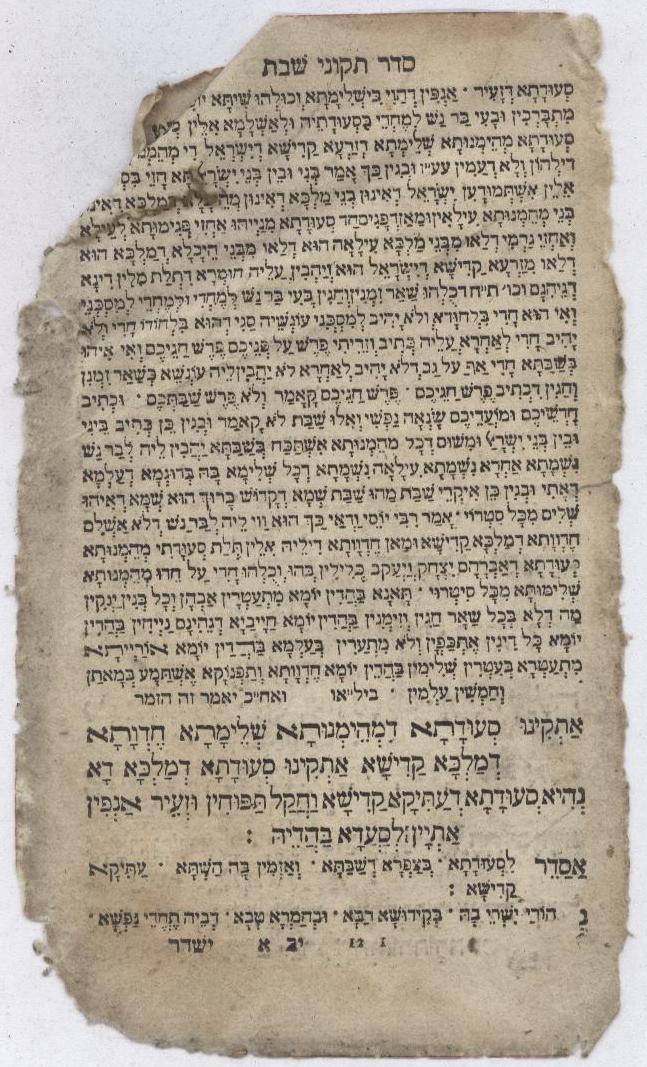 סדר תקוני שבת
סְעוּדָתָא דִזְעֵיר ׳ אַנְפִּין דְּהַוֵי בִּישְׁלֵימָתָא וְכוּלְהוּ שִׁיתָּא
מִתְבָּרְכִין וּבָעֵי בַּר נַשׁ לְמֶחְדֵּי בִּסְעוּדָתֵיהּ וּלְאַשְׁלְמָא אִלֵּין
סְעוּדָתָא מְהֵימְנוּתָא שְׁלֵימָתָא דְזַרְעָא קַדִּישָׁא דְיִשְׂרָאֵל דִּי
דִילְהוֹן וְלָא דְעַמִּין עע״ז וּבְגִין כָּךְ אָמַר בֵּנִי וּבֵין בְּנֵי יִשְׂרָאֵל תָּא חֲזֵי
אִלֵּין אִשְׁתְּמוֹדְעָן יִשְׂרָאֵל דְּאִינּוּן בְּנֵי מַלְכָּא דְּאִינּוּן דְמַלְכָּא דְּאִינּוּן
בְּנֵי מְהֵמְנוּתָא עִילָאִין וּמַאן דְּפָגִים חַד סְעוּדָתָא מִנַּיְיהוּ אַחֲזֵי פְּגִימוּתָא לְעֵילָא
וְאַחֲזֵי גַרְמֵי דְלָאו מִבְּנֵי מַלְכָּא עִילָאָה הוּא דְלָאו מִבְּנֵי הֵיכְלָא דְמַלְכָּא הוּא
דְלָאו מִזַּרְעָא קַדִּישָׁא דְיִשְׂרָאֵל הוּא וְיָהֲבִין עָלֵיהּ חוּמְרָא דִתְלַת מִלִּין דִּינָא
דְגֵיהִנָּם וכו׳ ת״ח דְּכֻלְּהוּ שְׁאַר זְמָנִין וְחַגִּין בָּעֵי בַּר נַשׁ לְמֶחְדֵי וּלְמֶחְדֵי לְמִסְכְּנֵי
וְאִי הוּא חָדֵי בִּלְחוֹדוֹי וְלָא יָהֵיב לְמִסְכְּנֵי עוֹנְשֵׁיהּ סַגִּי דְהוּא בִּלְחוֹדוֹי חָדֵי וְלָא
יָהֵיב חֲדֵי לְאַחֲרָא עֲלֵיהּ כְּתִיב וְזֵרִיתִי פֶרֶשׁ עַל פְּנֵיכֶם פֶּרֶשׁ חַגֵּיכֶם וְאִי אִיהוּ
בְּשַׁבַּתָּא חָדֵי אַף עַל גַּב דְּלָא יָהֵיב לְאַחֲרָא לָא יָהֲבִין לֵיהּ עוֹנְשָׁא כִּשְׁאַר זְמַנִּין
וְחַגִּין דִּכְתִיב פֶּרֶשׁ חַגֵּיכֶם ׳ פֶּרֶשׁ חַגֵּיכֶם קָאָמַר וְלֹא פֶּרֶשׁ שַׁבַּתְּכֶם ׳ וּכְתִיב
חָדְשֵׁיכֶם וּמוֹעֲדֵיכֶם שָׂנְאָה נַפְשִׁי וְאִלּוּ שַׁבָּת לֹא קָאמַר וּבְגִין כֵּן כְּתִיב בֵּינִי
וּבֵין בְּנֵי יִשְׂרָ׳ וּמִשּׁוּם דְּכָל מְהֵמְנוּתָא אִשְׁתְּכַח בְּשַׁבַּתָּא יַהֲבִין לֵיהּ לְבַר נַשׁ
נִשְׁמְתָא אַחֲרָא נִשְׁמְתָא עִילָאָה נִשְׁמְתָא דְּכָל שְׁלֵימָא בָהּ בְּדוּגְמָא דְעַלְמָא
דְּאָתֵי וּבְגִין כֵּן אִיקְרֵי שַׁבָּת מַהוּ שַׁבָּת שְׁמָא דְקָדוֹשׁ בָּרוּךְ הוּא שְׁמָא דְּאִיהוּ
שְׁלִים מִכָּל סִטְרוֹי ׳ אָמַר רַבִּי יוֹסֵי וַדַּאי כָּךְ הוּא וַוי לֵיהּ לְבַר נַשׁ דְּלָא אַשְׁלִם
חֶדְוָותָא דְמַלְכָּא קַדִּישָׁא וּמַאן חֶדְוָותָא דִילֵיהּ אִלֵּין תְּלַת סְעוּדָתֵי מְהֵמְנוּתָא
סְעוּדָתָא דְּאַבְרָהָם יִצְחָק וְיַעֲקֹב כְּלִילִין בְּהוּ וְכֻלְּהוּ חֲדֵי עַל חֵדוּ מְהֵמְנוּתָא
שְׁלִימוּתָא מִכָּל סִיטְרוֹי ׳ תָּאנָא בְּהָדֵין יוֹמָא מִתְעַטְּרִין אֲבָהָן וְכָל בְּנִין יָנְקִין
מַה דְּלָא בְּכָל שְׁאַר חַגִּין וְזִימְנִין בְּהָדֵין יוֹמָא חַיָּיבַיָּא דְגֵהִינָּם נָיְיחִין בְּהָדֵין
יוֹמָא כָּל דִּינִין אִתְכַּפְיָין וְלֹא מִתְעָרִין בְּעַלְמָא בְּהָדֵין יוֹמָא אוֹרַיְיתָא
מִתְעַטְּרָא בְּעִטְרִין שְׁלֵימִין בְּהָדֵין יוֹמָא חֶדְוָותָא וְתַפְנוּקָא אִשְׁתְּמַע בְּמָאתָן
וְחַמְשִׁין עָלְמִין ׳ ביל״או ואח״כ יאמר זה הזמר
אַתְקִינוּ סְעוּדָתָא דִמְהֵימְנוּתָא שְׁלֵימָתָא חֶדְוָתָא
דְמַלְכָּא קַדִּישָׁא אַתְקִינוּ סְעוּדָתָא דְמַלְכָּא דָא
נְהִיא סְעוּדָתָא דְעַתִּיקָא קַדִּישָׁא וַחֲקַל תַּפּוּחִין וּזְעֵיר אַנְפִּין
אַתְיָין לְסַעֲדָא בַּהֲדֵיהּ :
אֲסַדֵּר לִסְעוּדָתָא ׳ בְּצַפְרָא דְשַׁבַּתָּא ׳ וְאַזְמִין בָּהּ הַשְׁתָּא ׳ עַתִּיקָא
קַדִּישָׁא :
נְהוֹרֵי יִשְׁרֵי בָהּ ׳ בְּקִידּוּשָׁא רַבָּא ׳ וּבְחַמְרָא טָבָא ׳ דְּבֵיהּ תֶּחֱדֵי נַפְשָׁא ׳
יב א ישדר